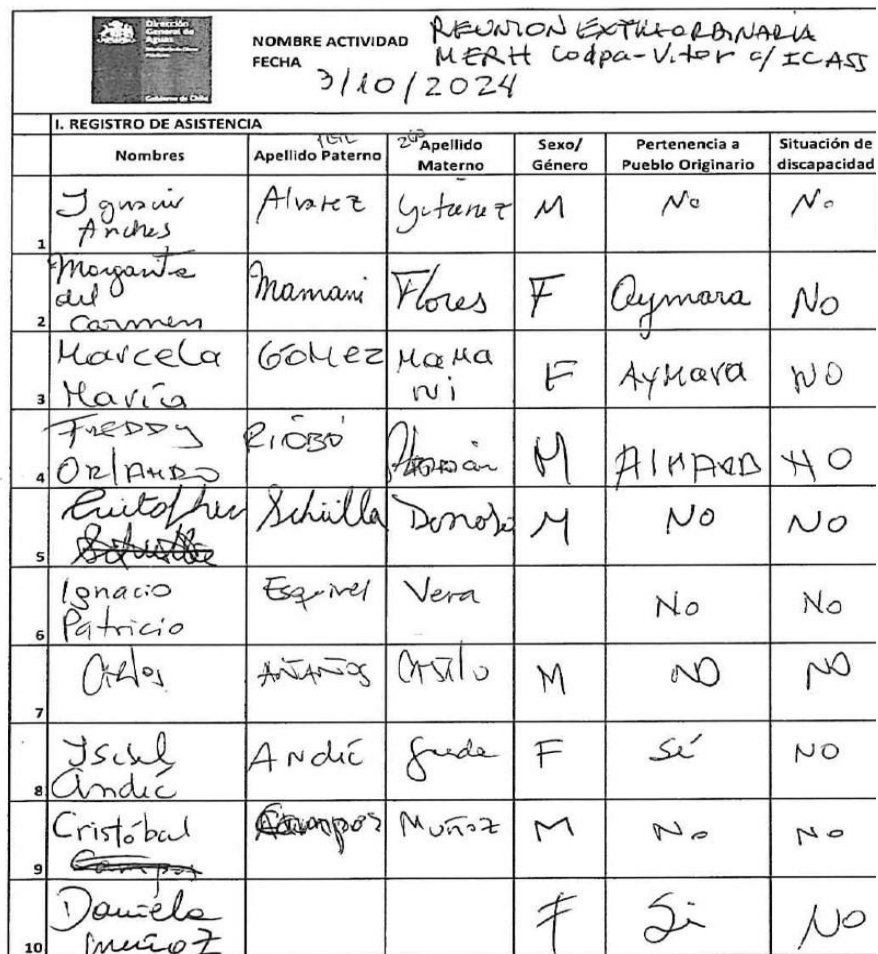 Dirección
General de
Aguas
Gobierno de Chile
NOMBRE ACTIVIDAD REUNION EXTRAORDINARIA
MERH Codpa-Vitor c/ ICASS
FECHA 3/10/2024
I. REGISTRO DE ASISTENCIA
Nombres Apellido Paterno Apellido Materno Sexo/ Género Pertenencia a Pueblo Originario Situación de discapacidad
1 Alvarez M No No
2 del Carmen Mamani Flores F Aymara No
3 Marcela María GOMEZ MaMa ni F AyMara NO
4 FREDDY ORlANDO RIOBÓ M AIMARA NO
5 Schülla Donoso M No No
6 Ignacio Patricio Esquivel Vera No No
7 AÑAÑOS M NO NO
8 Andić Andić F Sí NO
9 Cristóbal Campos Campos Muñoz M No No
10 Daniela muñoz F Si No